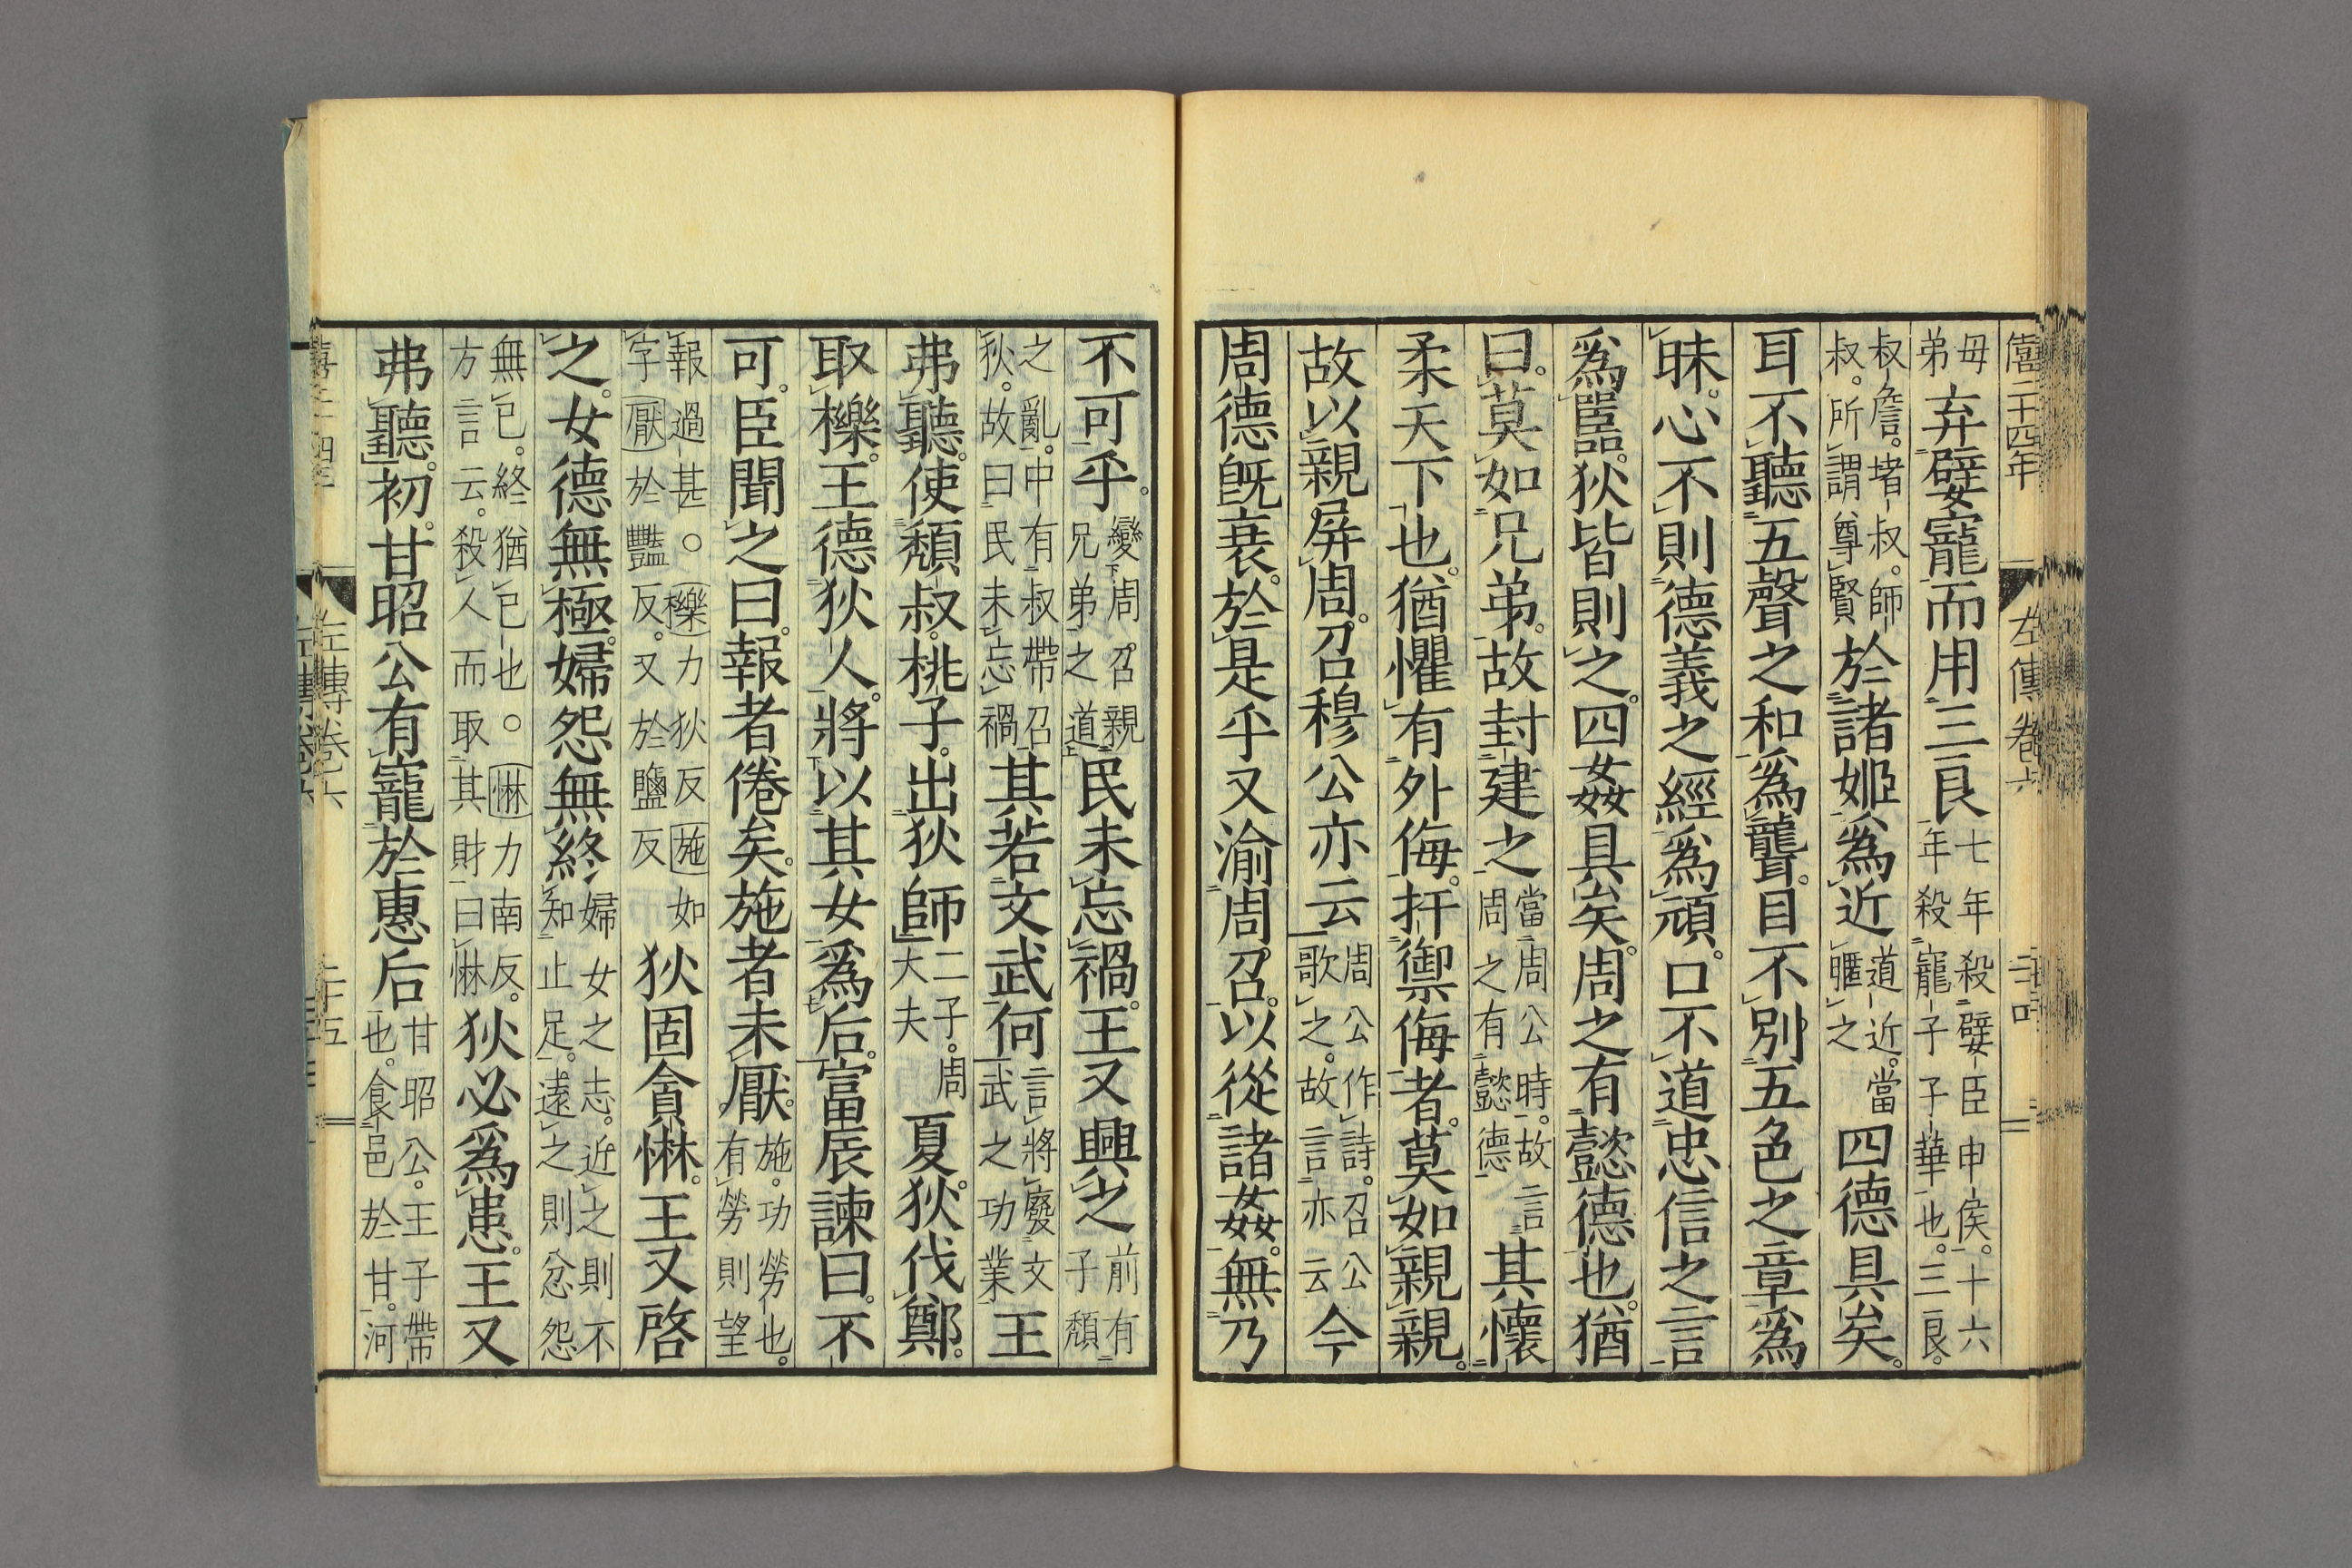 僖二十四年 左傳卷六 二十四
毋弟弃嬖寵而用三良七年殺嬖臣申侯。十六年殺寵子子華也。三良。
叔詹。堵叔。師叔。所謂尊賢於諸姬爲近道近。當暱之四德具矣。
耳不聽五聲之和爲聾。目不別五色之章爲
昧。心不則德義之經爲頑。口不道忠信之言
爲嚚。狄皆則之。四姦具矣。周之有懿德也。猶
曰。莫如兄弟。故封建之當周公時。故言周之有懿德其懷
柔天下也。猶懼有外侮。扞禦侮者。莫如親親。
故以親屏周。召穆公亦云周公作詩。召公歌之。故言亦云今
周德旣衰。於是乎又渝周召。以從諸姦。無乃
不可乎。變周召親兄弟之道民未忘禍。王又興之前有子頹
之亂。中有叔帶召狄。故曰民未忘禍其若文武何言將廢文武之功業王
弗聽。使頹叔。桃子。出狄師二子。周大夫夏。狄伐鄭。
取櫟。王德狄人。將以其女爲后。富辰諫曰。不
可。臣聞之曰。報者倦矣。施者未厭。施。功勞也。有勞則望
報過甚。○櫟力狄反施如字厭於豔反。又於鹽反狄固貪惏。王又啓
之。女德無極。婦怨無終婦女之志。近之則不知止足。遠之則忿怨
無已。終猶已也。○惏力南反。方言云。殺人而取其財曰惏狄必爲患。王又
弗聽。初。甘昭公有寵於惠后甘昭公。王子帶也。食邑於甘。河
左傳卷六 二十五